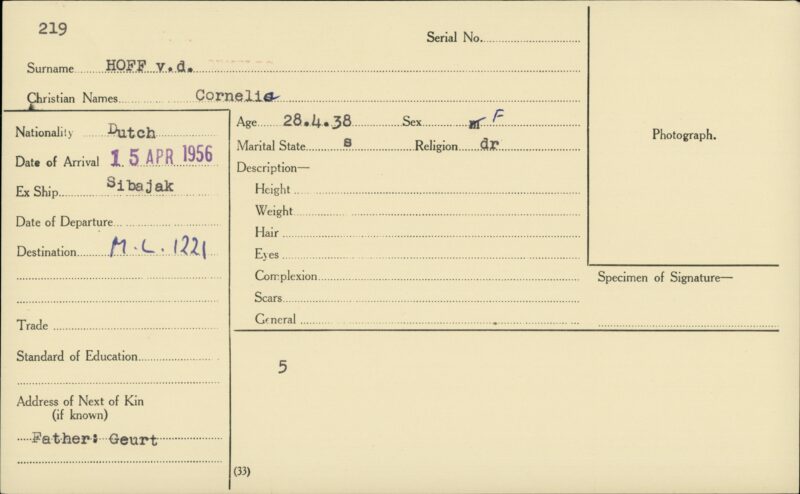 219
Serial No.
Surname HOFF v.d.
Christian Names Cornelia
Nationality Dutch
Date of Arrival 15 APR 1956
Ex Ship Sibajak
Date of Departure
Destination M.L. 1221
Trade
Standard of Education
Address of Next of Kin
(if known)
Father: Geurt
Age 28.4.38 Sex F
Marital State s Religion dr
Description—
Height
Weight
Hair
Eyes
Complexion
Scars
General
5
(33)
Photograph.
Specimen of Signature—